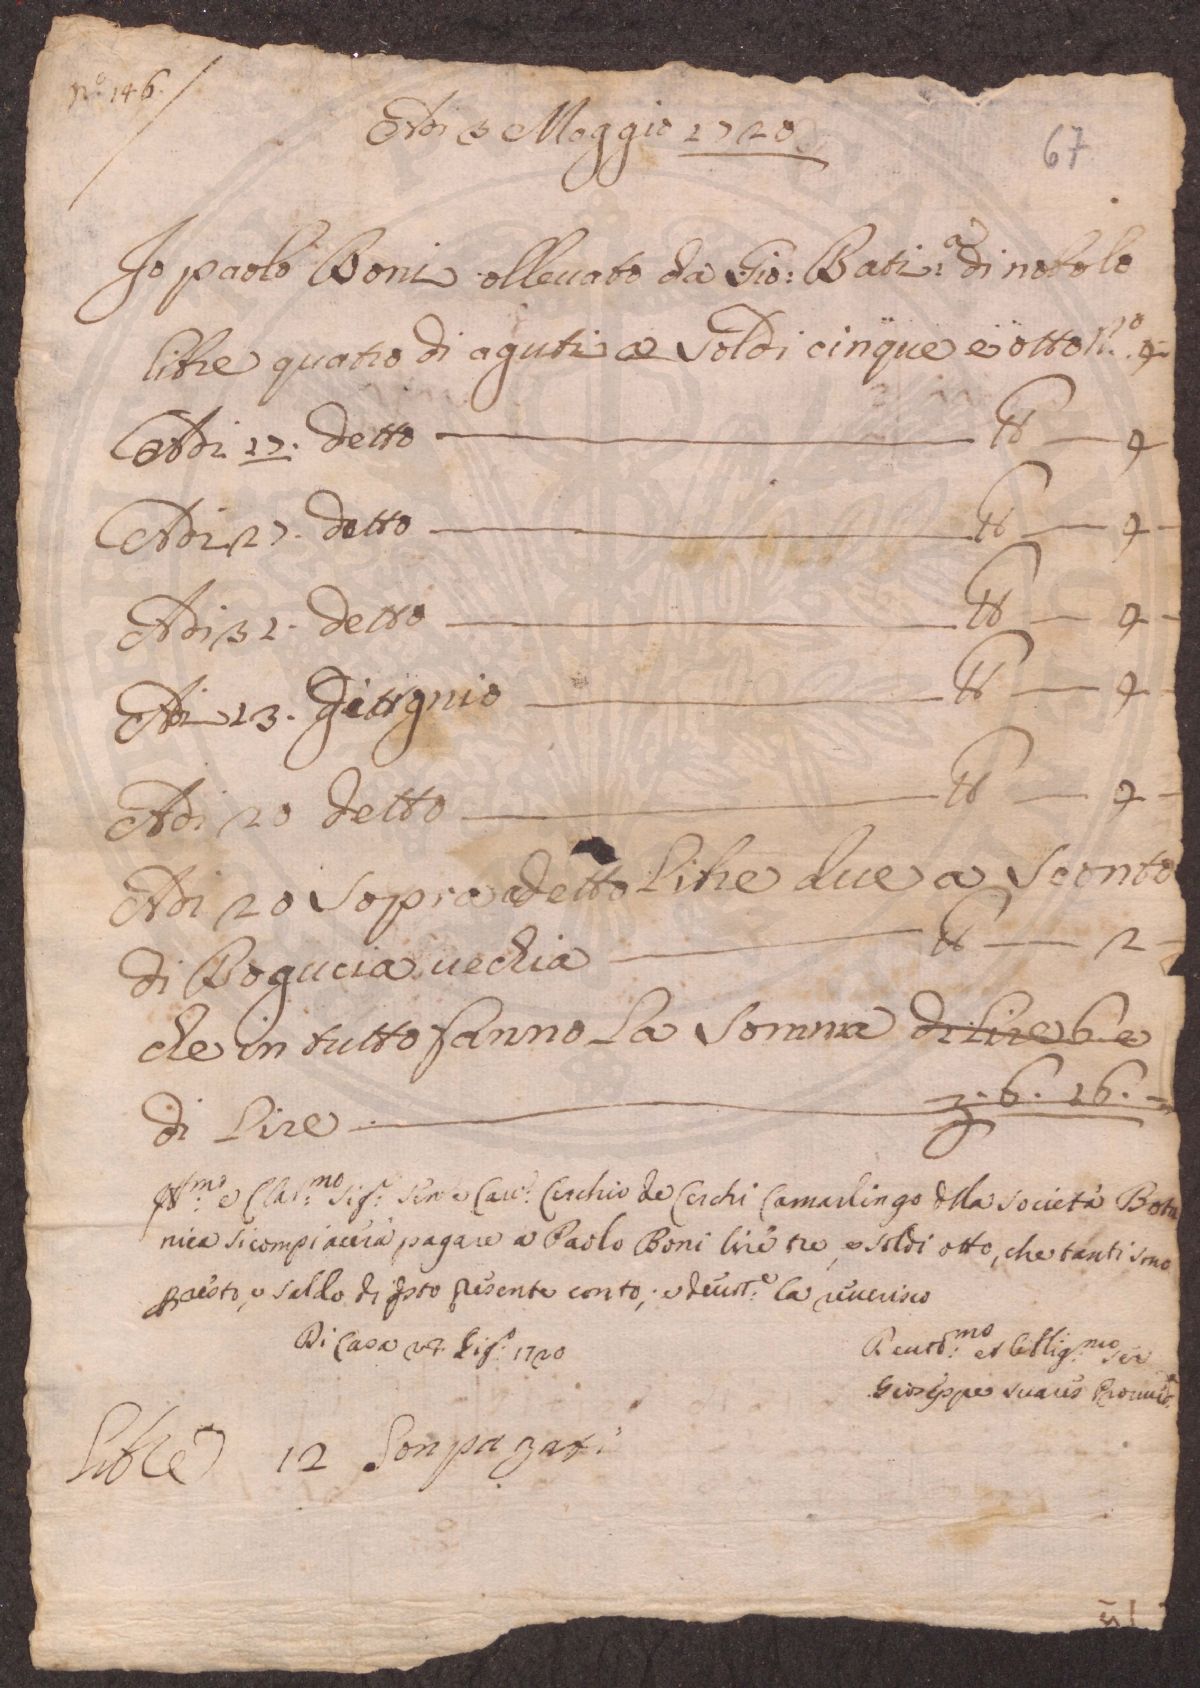 N.º 146.
Adi 3 Maggio 1720
67
Io paolo Boni ò lleuato da Gio: Bati:ª di nofolo
libre quatro di aguti a soldi cinque e otto N.º 4
Adi 17. detto # 4
Adi 27. detto # 4
Adi 31. detto # 4
Adi 13. giugnio # 4
Adi 20 detto # 4
Adi 20 sopra detto Libre due a sconto
di Bogucia uechia # 2
che in tutto fanno la somma di Lire 6 e
di Lire 6. 16. —
Ill:mo e Clar:mo Sig.r Cerchio de Cerchi Camarlingo dlla Società Bota
nica si compiacerà pagare a Paolo Boni lire tre, e soldi otto, che tanti sono
p resto, e saldo di qsto presente conto, e deuot.e la riuerisco
Di Casa 24. Giug.º 1720
Deuot:mo et Obblig:mo Ser
Gioseppe Suares Proued.
Libre 12 Son pazati